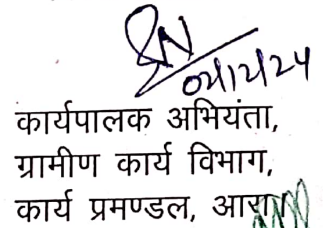 02/12/24
कार्यपालक अभियंता,
ग्रामीण कार्य विभाग,
कार्य प्रमण्डल, आरा